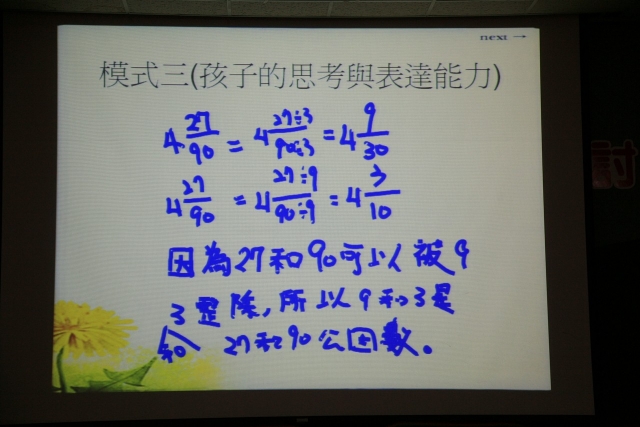 next →
模式三(孩子的思考與表達能力)
4 27/90 = 4 27÷3/90÷3 = 4 9/30
4 27/90 = 4 27÷9/90÷9 = 4 3/10
因為27和90可以被9
和3整除,所以9和3是
27和90公因數。
討